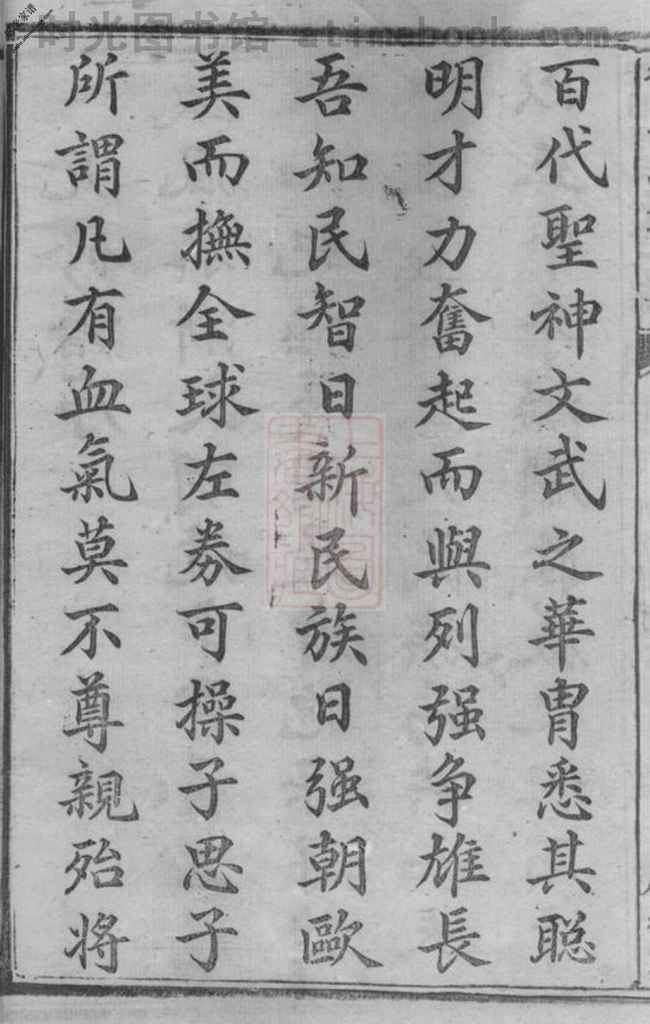 时光图书馆 atimebook.com
百代聖神文武之華胄悉其聡
明才力奮起而與列强争雄長
吾知民智日新民族日强朝歐
美而撫全球左券可操子思子
所謂凡有血氣莫不尊親殆將